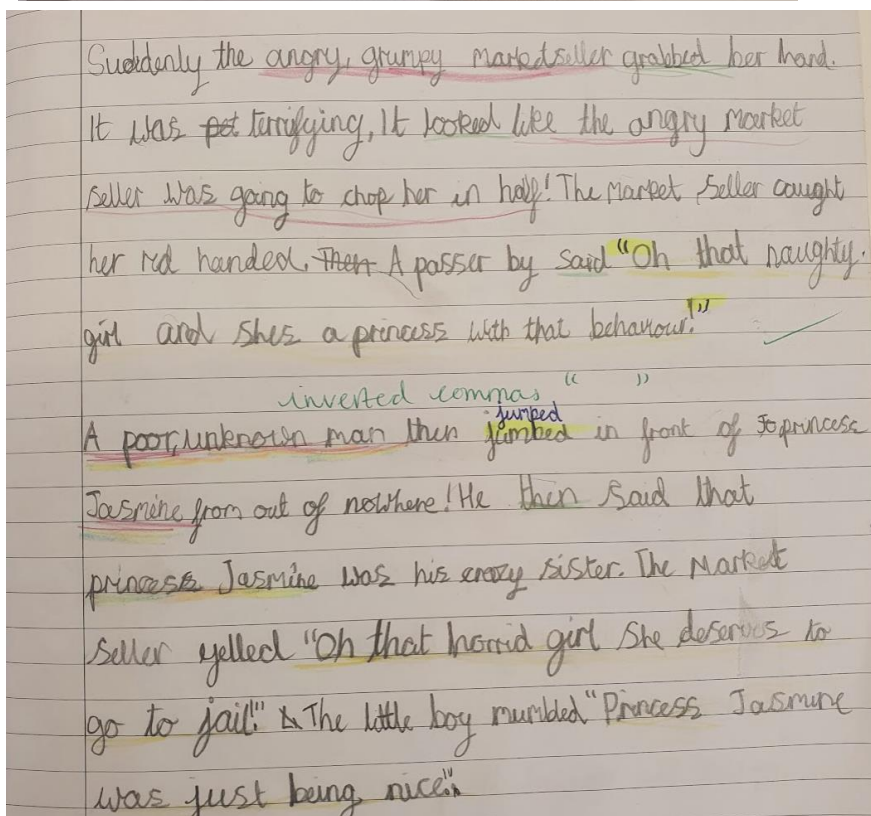 Suddenly the angry, grumpy marketseller grabbed her hand.
It was terrifying, It looked like the angry market
seller was going to chop her in half! The Market Seller caught
her red handed. Then A passer by said "Oh that naughty.
girl and shes a princess with that behaviour!"
inverted commas " "
jumped
A poor, unknown man then jumbed in front of princess
Jasmine from out of nowhere! He then said that
princess Jasmine was his crazy sister. The Market
seller yelled "Oh that horrid girl she deserves to
go to jail!" The little boy mumbled "Princess Jasmine
was just being nice".